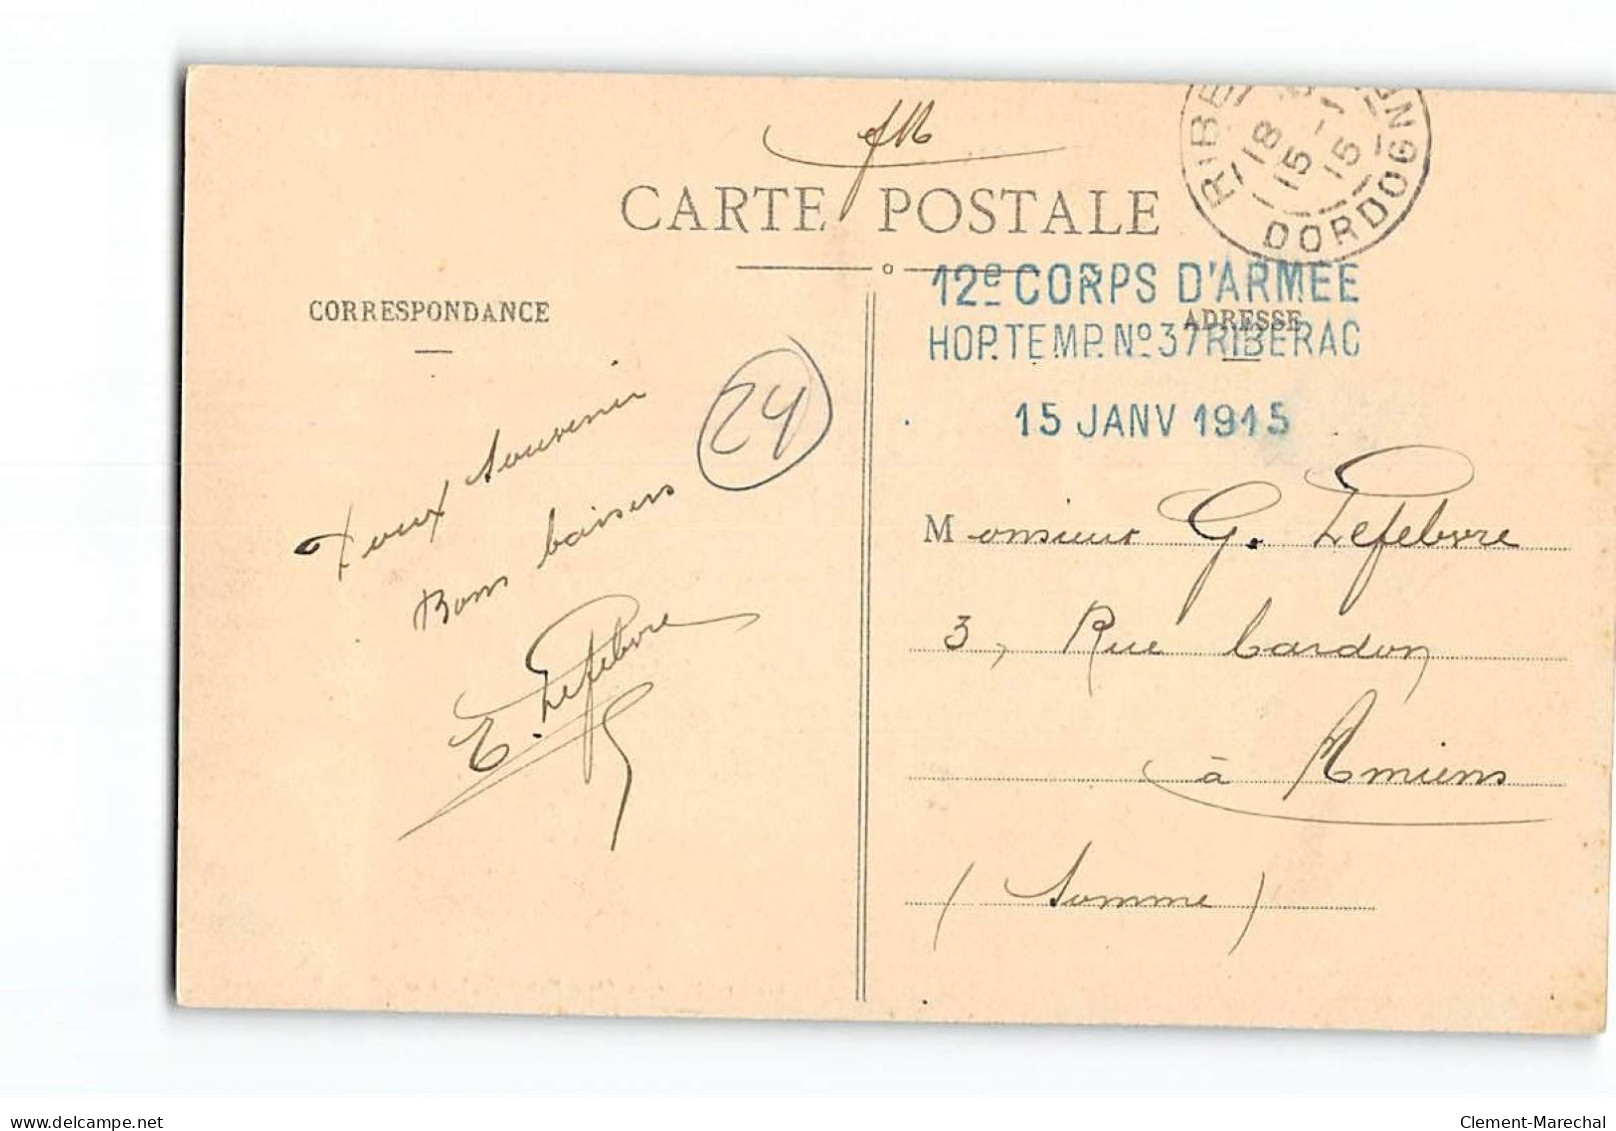 FM
CARTE POSTALE
RIBE DORDOGN
18
15 -1
15
12e CORPS D'ARMEE
HOP. TEMP. No 37 RIBERAC
15 JANV 1915
CORRESPONDANCE
ADRESSE
24
Doux Souvenir
Bons baisers
E. Lefebvre
Monsieur G. Lefebvre
3, Rue Cardon
à Amiens
(Somme)
delcampe.net
Clement-Marechal